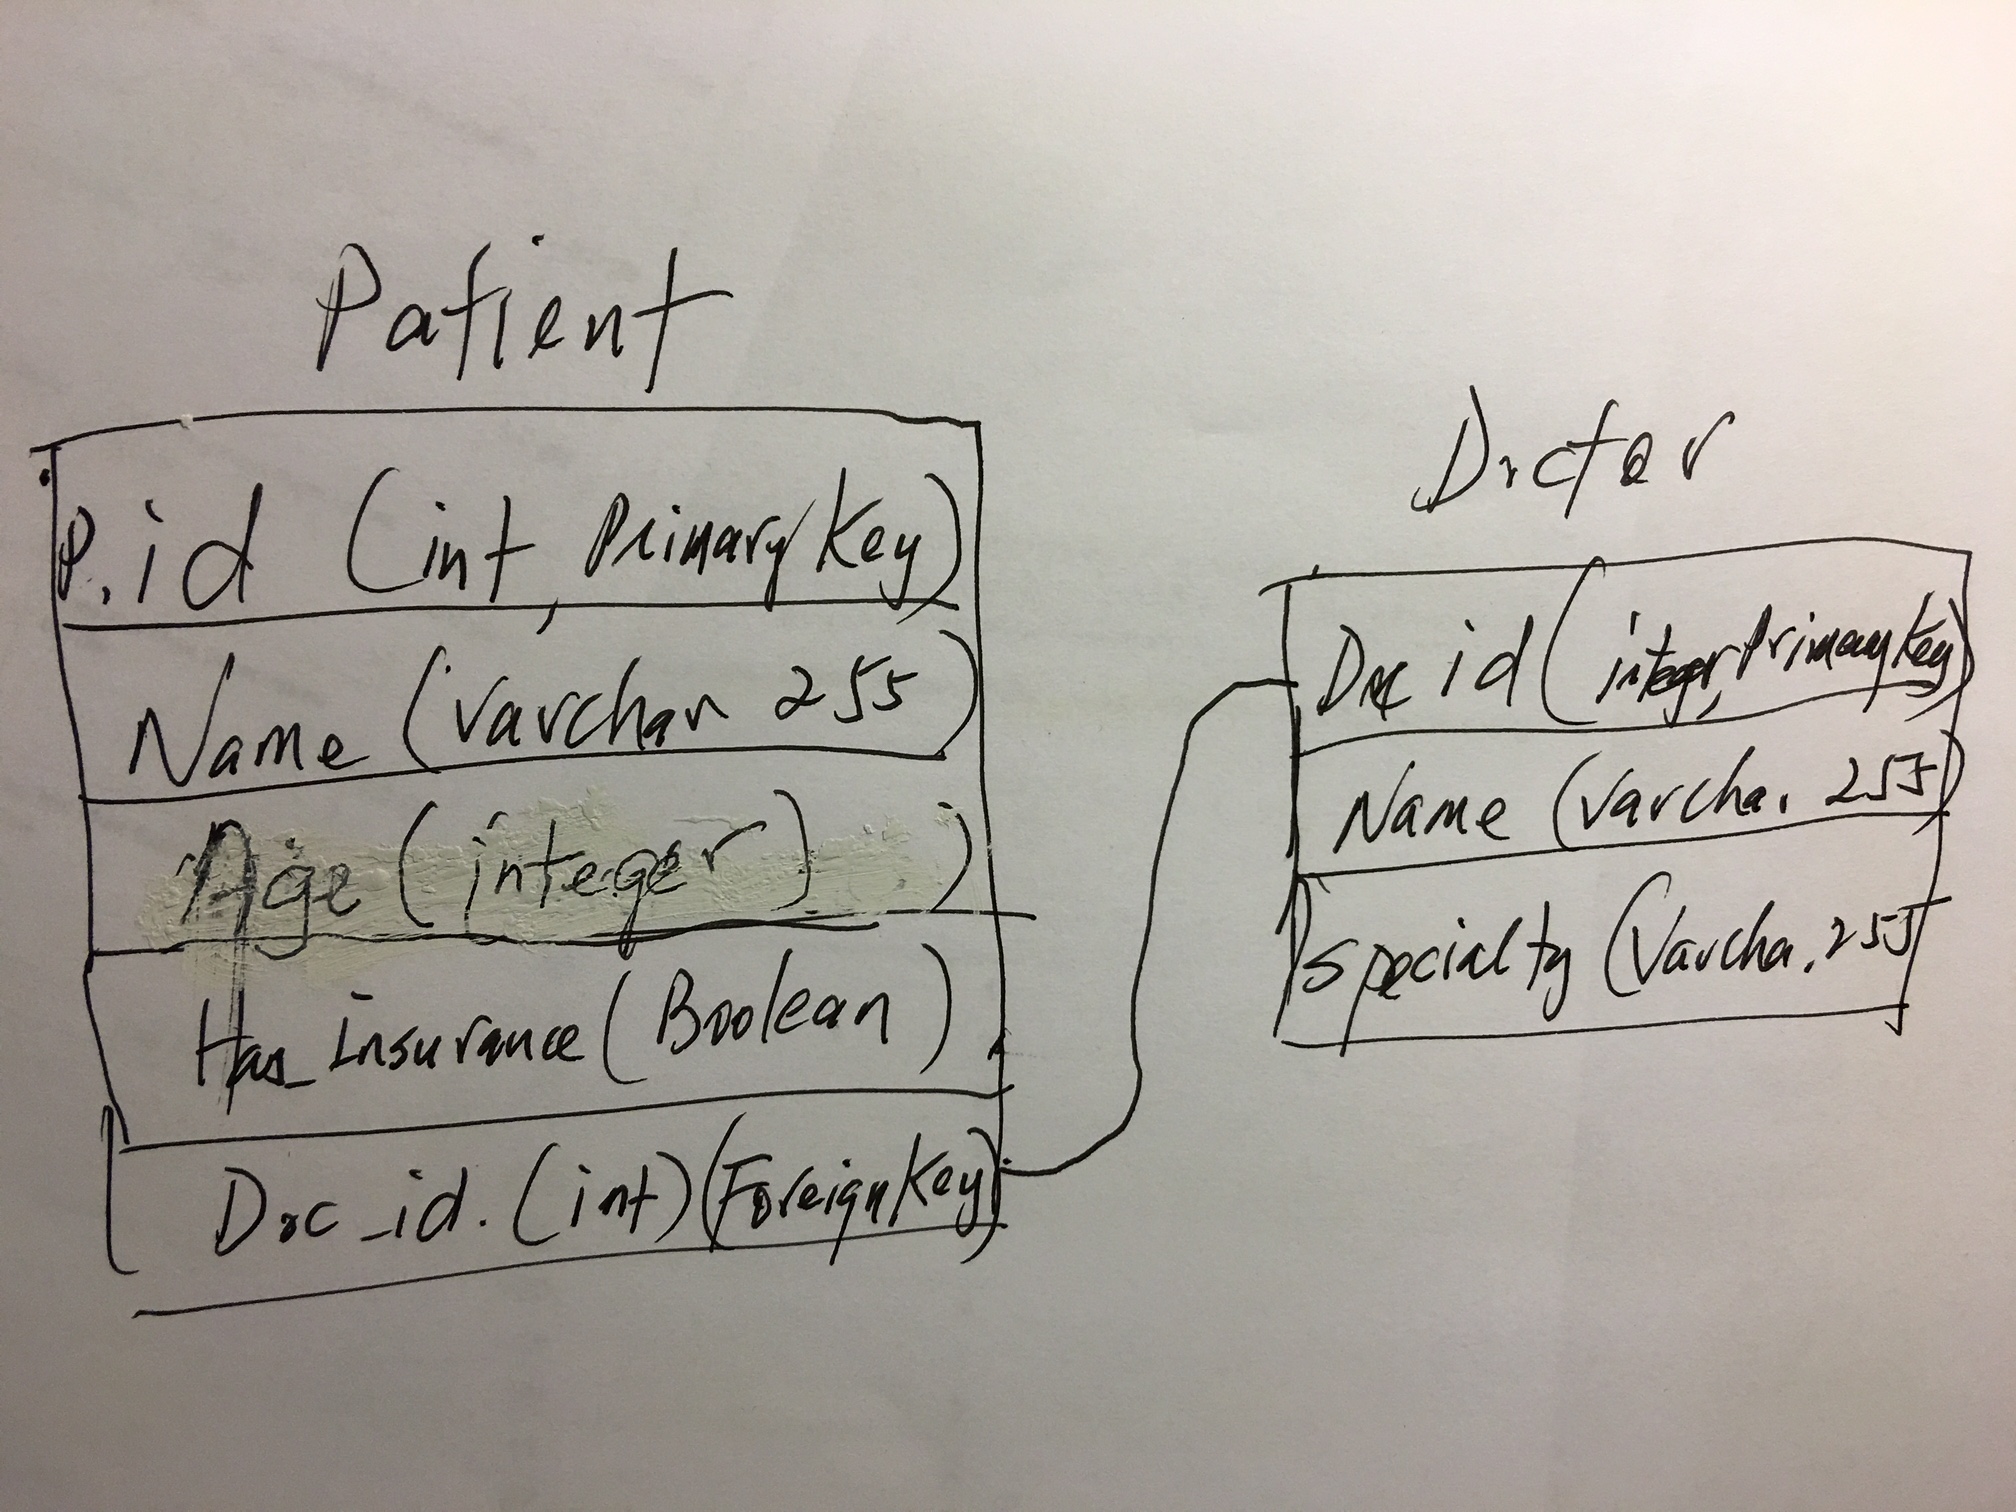 Patient
P.id (int, Primary Key)
Name (Varchar 255)
Age (integer)
Has_insurance (Boolean)
Doc_id. (int) (Foreign Key)
Doctor
Doc id (integer, Primary Key)
Name (Varchar, 255)
Speciality (Varchar, 255